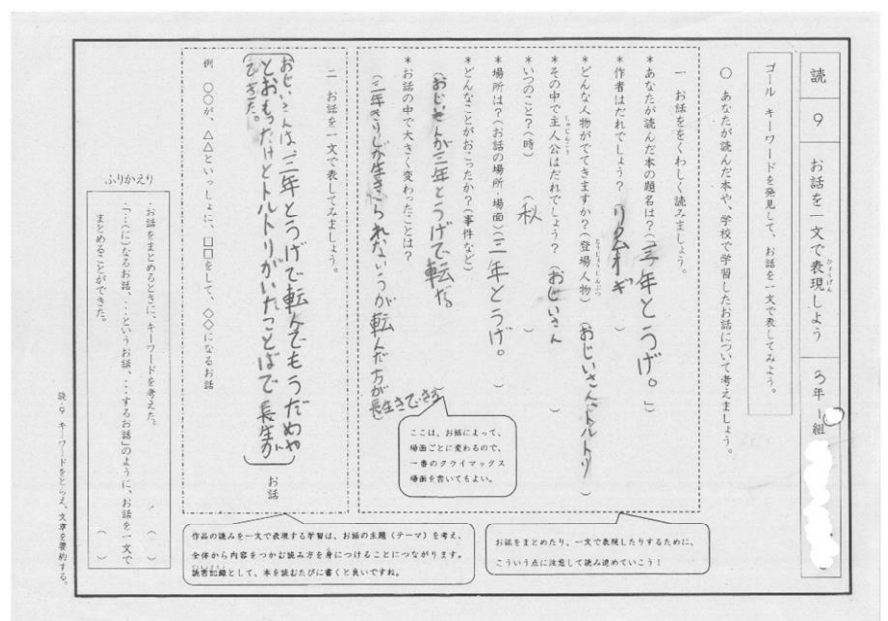 読 9 お話を一文で表現しよう 3年1組
ゴール キーワードを発見して、お話を一文で表してみよう。
○ あなたが読んだ本や、学校で学習したお話について考えましょう。
一 お話ををくわしく読みましょう。
*あなたが読んだ本の題名は？(「三年とうげ。」)
*作者はだれでしょう？(リクムオギ)
*どんな人物がでてきますか？(登場人物)(おじいさん、トルトリ)
*その中で主人公はだれでしょう？(おじいさん)
*いつのこと？(時)(秋)
*場所は？(お話の場所・場面)(三年とうげ。)
*どんなことがおこったか？(事件など)
(おじいさんが三年とうげで転だ。
*お話の中で大きく変わったことは？
(三年きりしか生きられないうが転んだ方が長生きできる
ここは、お話によって、
場面ごとに変わるので、
一番のクライマックス
場面を書いてもよい。
お話をまとめたり、一文で表現したりするために、
こういう点に注意して読み進めていこう！
二 お話を一文で表してみましょう。
例 ○○が、△△といっしょに、□□をして、◇◇になるお話
おじいさんは、三年とうげで転んでもうだめや
とおもったけどトルトリがいたことばで長生が
できた。 お話
作品の読みを一文で表現する学習は、お話の主題(テーマ)を考え、
全体から内容をつかむ読み方を身につけることにつながります。
読書記録として、本を読むたびに書くと良いですね。
ふりかえり
・お話をまとめるときに、キーワードを考えた。 ( )
・「…(に)なるお話、…というお話、…するお話」のように、お話を一文で
まとめることができた。 ( )
読-9 キーワードをとらえ、文章を要約する。